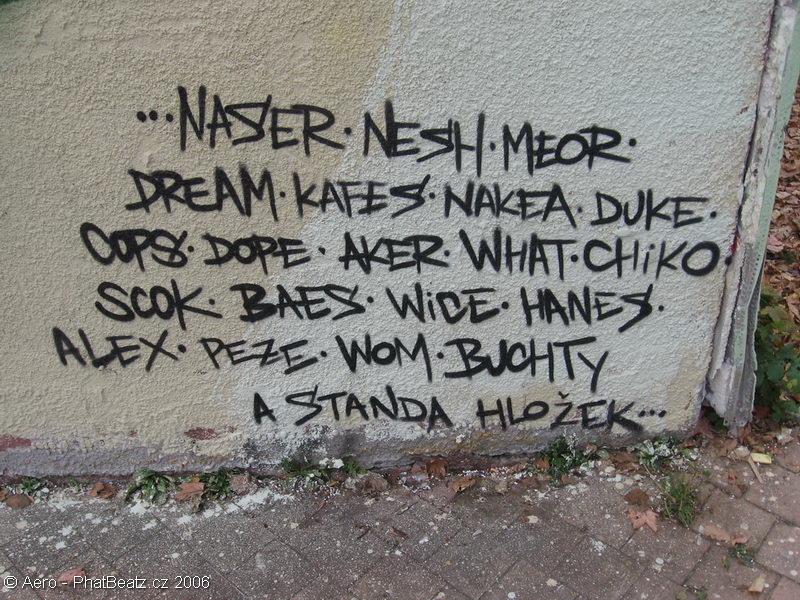 ...NASER·NESH·MEOR·
DREAM·KAFES·NAKEA·DUKE·
COPS·DOPE·AKER·WHAT·CHiKO·
SCOK·BAES·WiCE·HANES·
ALEX·PEZE·WOM·BUCHTY
A STANDA HLOŽEK...
© Aero - PhatBeatz.cz 2006